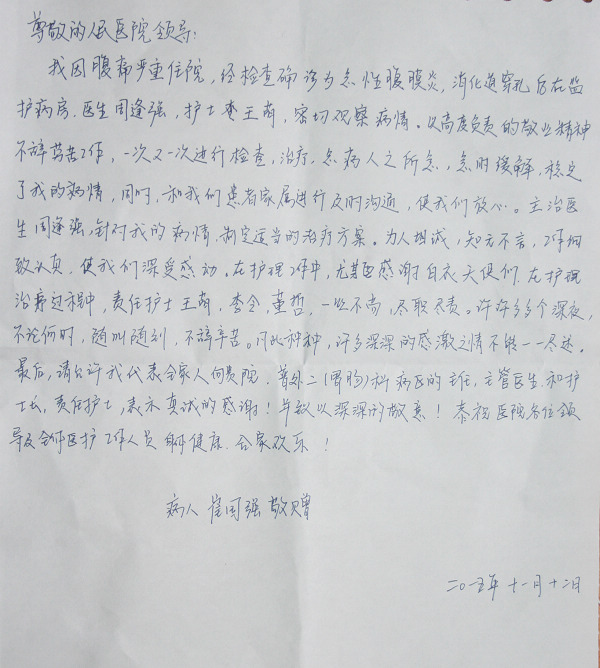 尊敬的人民医院领导:
我因腹痛严重住院,经检查确诊为急性腹膜炎,消化道穿孔后在监
护病房.医生周逢强,护士李王萌,密切观察病情.以高度负责的敬业精神
不辞劳苦工作,一次又一次进行检查,治疗,急病人之所急,急时缓解,稳定
了我的病情,同时,和我们患者家属进行及时沟通,使我们放心。主治医
生周逢强,针对我的病情,制定适当的治疗方案。为人坦诚,知无不言,工作细
致认真,使我们深受感动.在护理工作中,尤其感谢白衣天使们.在护理
治疗过程中,责任护士王萌,李会,董哲,一丝不苟,尽职尽责。许许多多个深夜,
不论何时,随叫随到,不辞辛苦。凡此种种,许多深深的感激之情不能一一尽述.
最后,请允许我代表全家人向贵院.普外二(胃肠)科病区的主任,主管医生.和护
士长,责任护士,表示真诚的感谢!并致以深深的敬意!恭祝医院各位领
导及全体医护工作人员身体健康.合家欢乐!
病人崔国强敬赠
二〇一五年十一月十二日